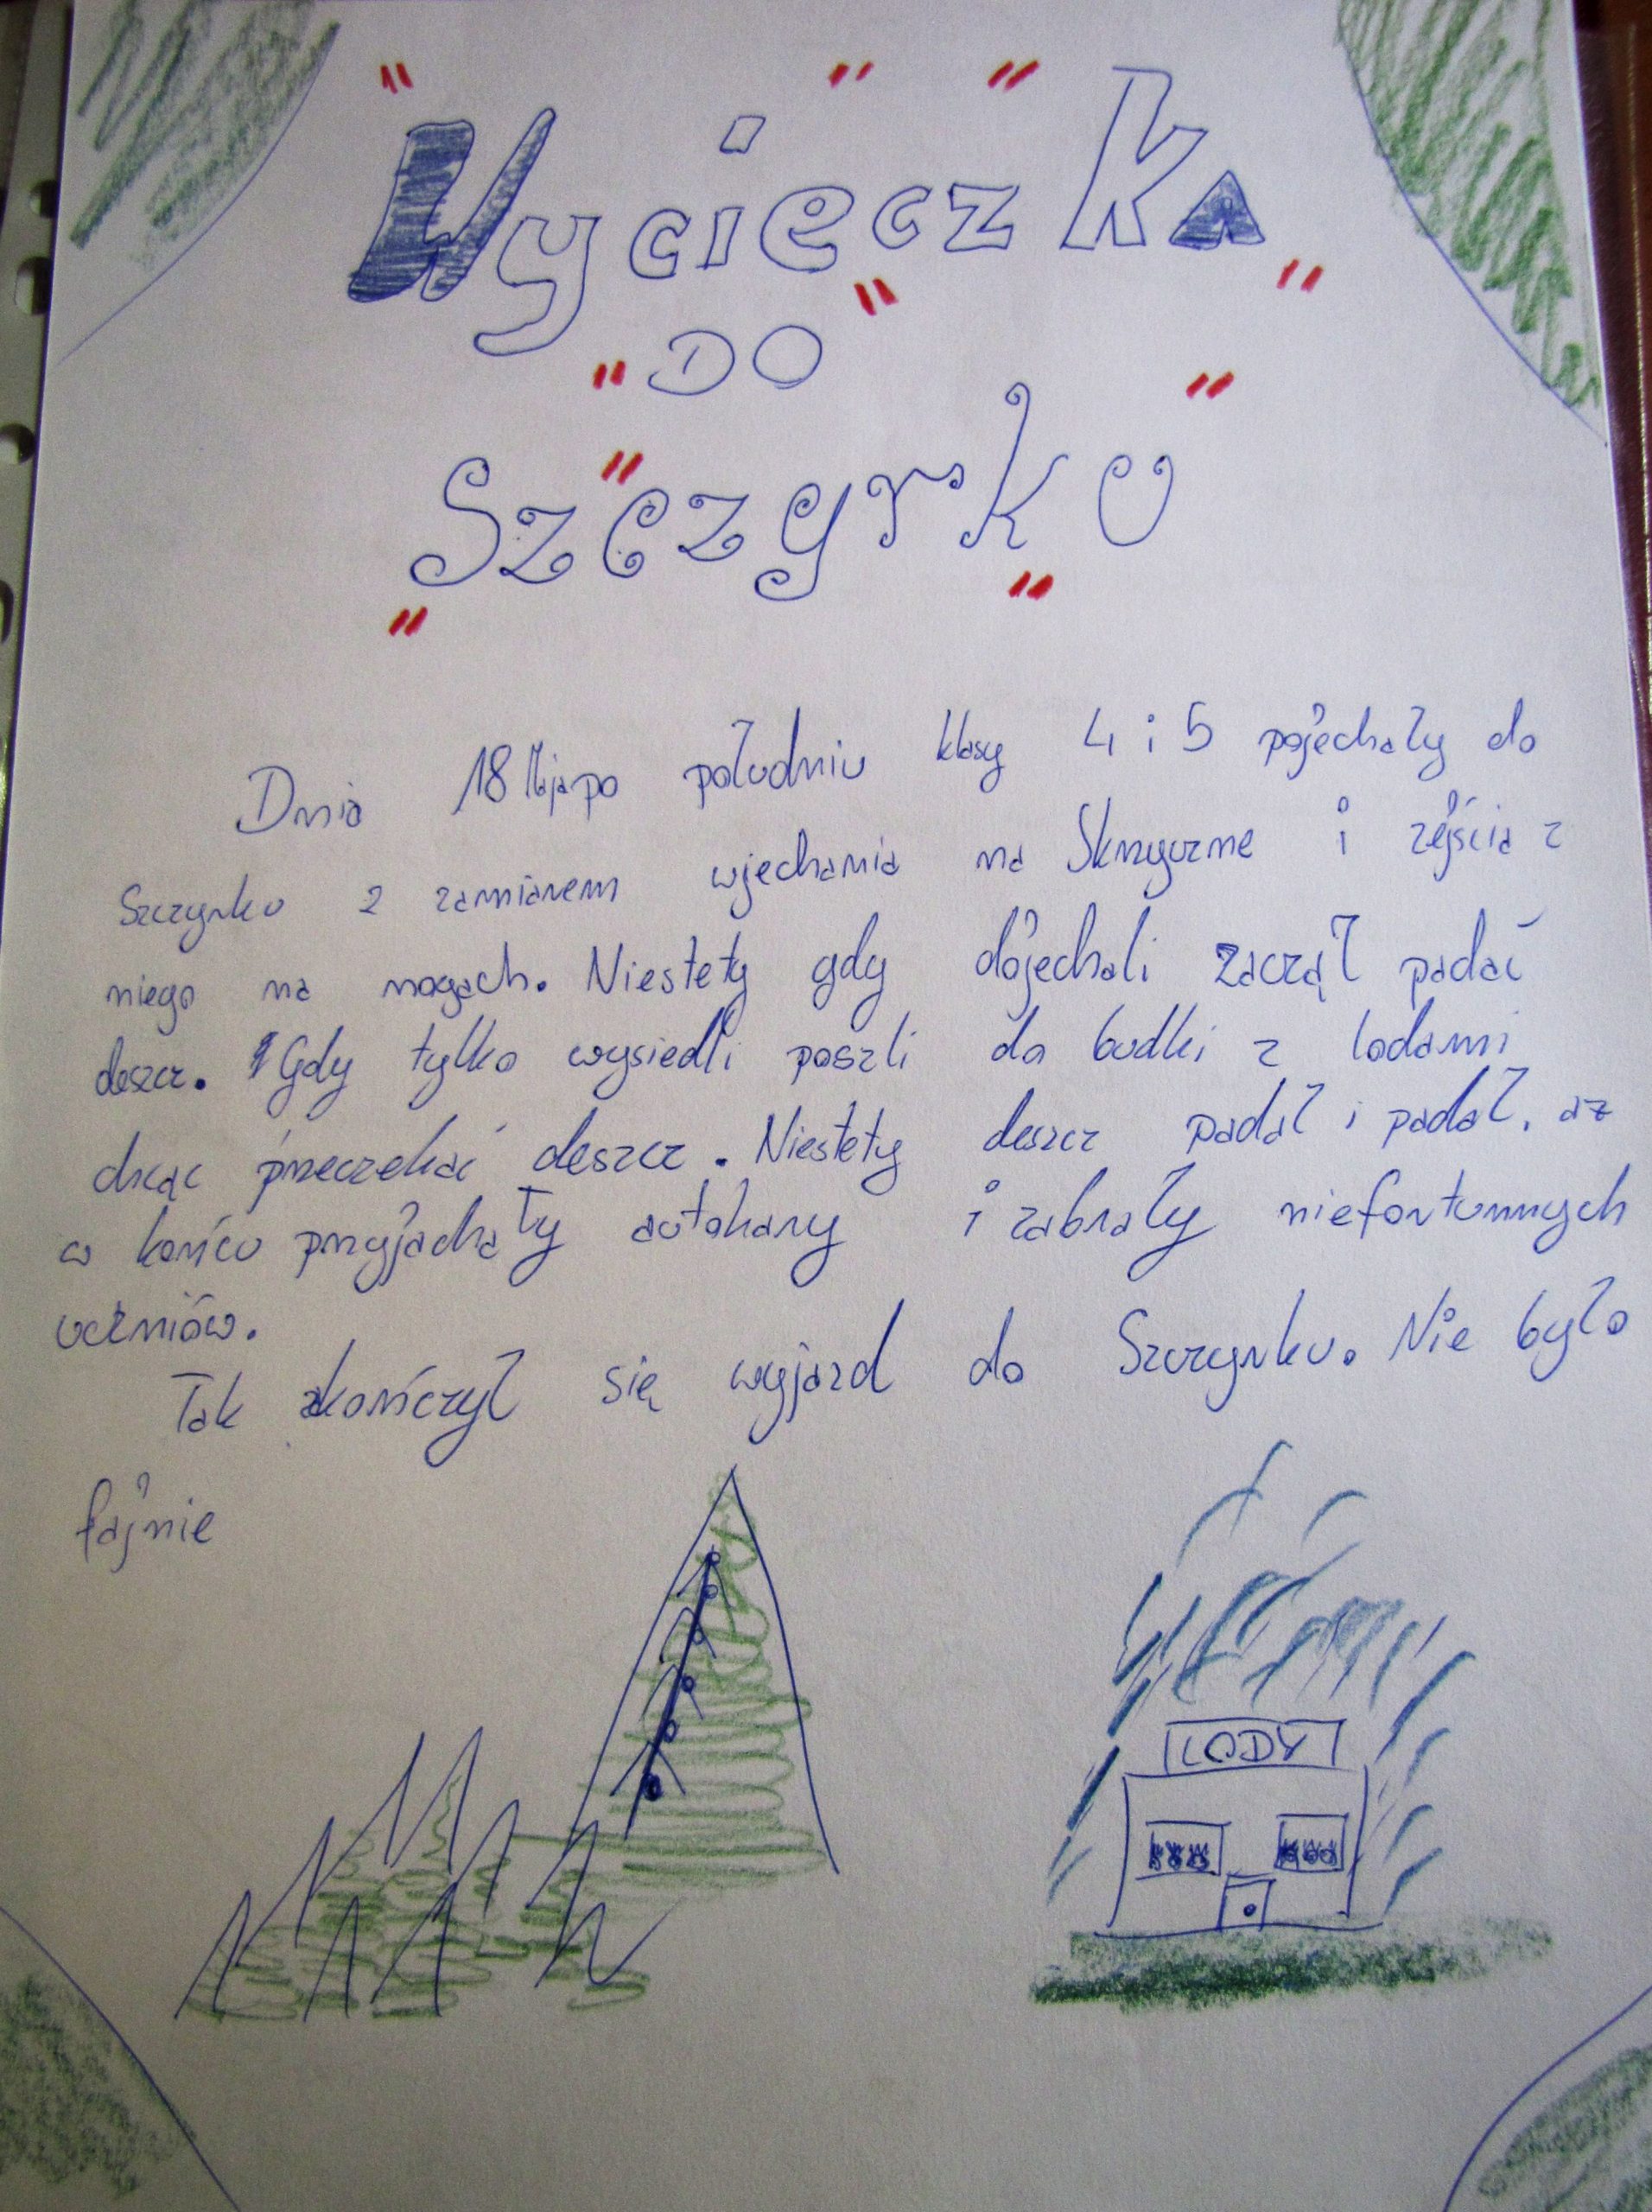 Wycieczka
DO
Szczyrku
Dnia 18 Maja po południu klasy 4 i 5 pojechały do
Szczyrku z zamiarem wjechania na Skrzyczne i zejścia z
niego na nogach. Niestety gdy dojechali zaczął padać
deszcz. Gdy tylko wysiedli poszli do budki z lodami
chcąc przeczekać deszcz. Niestety deszcz padał i padał, az
w końcu przyjachały autokary i zabrały niefortunnych
uczniów.
Tak zkończył się wyjazd do Szczyrku. Nie było
fajnie
LODY